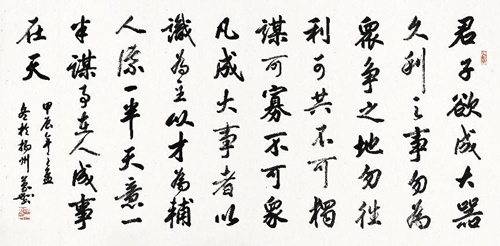 君子欲成大器
久利之事勿为
眾争之地勿往
利可共不可獨
謀可寡不可眾
凡成大事者以
識為主以才為輔
人谋一半天意一
半謀事在人成事
在天
甲辰年之夏
於揚州